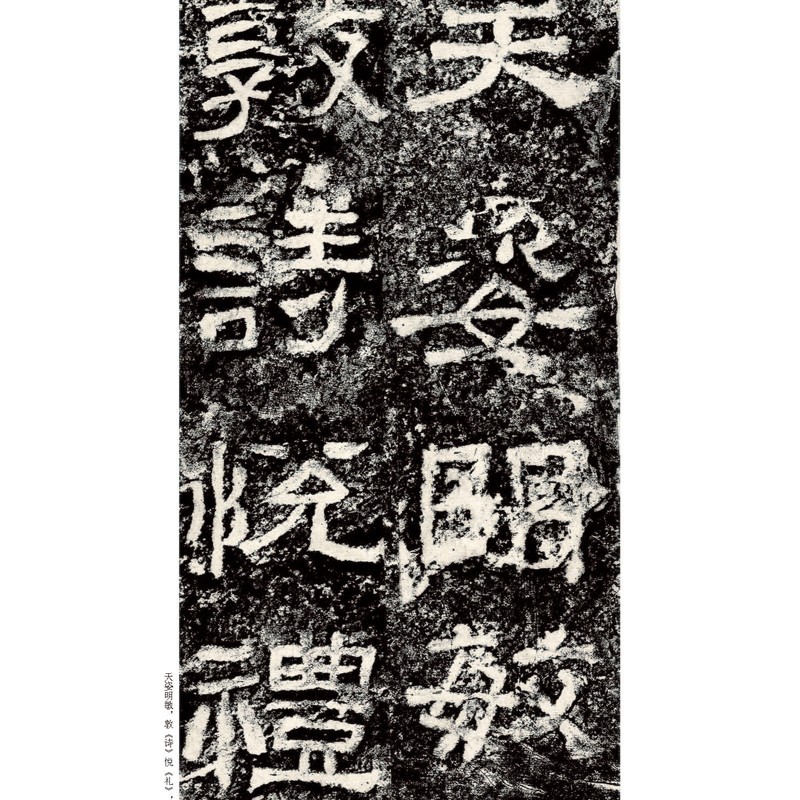 天姿明敏
敦詩悅禮
天姿明敏，敦《诗》悦《礼》，